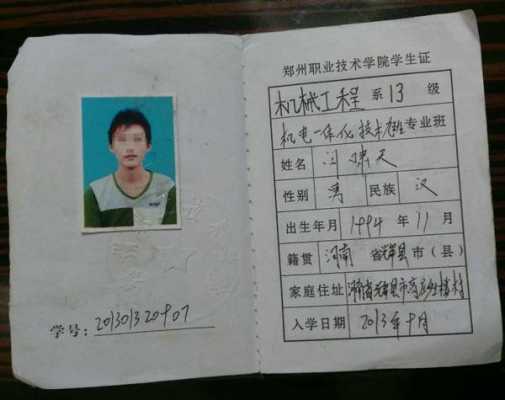 学号：201301320907
郑州职业技术学院学生证
机械工程 系 13 级
机电一体化技术 专业班
姓名 闫 天
性别 男 民族 汉
出生年月 1994 年 11 月
籍贯 河南 省 辉县 市（县）
家庭住址 河南省辉县市 村
入学日期 2013年9月